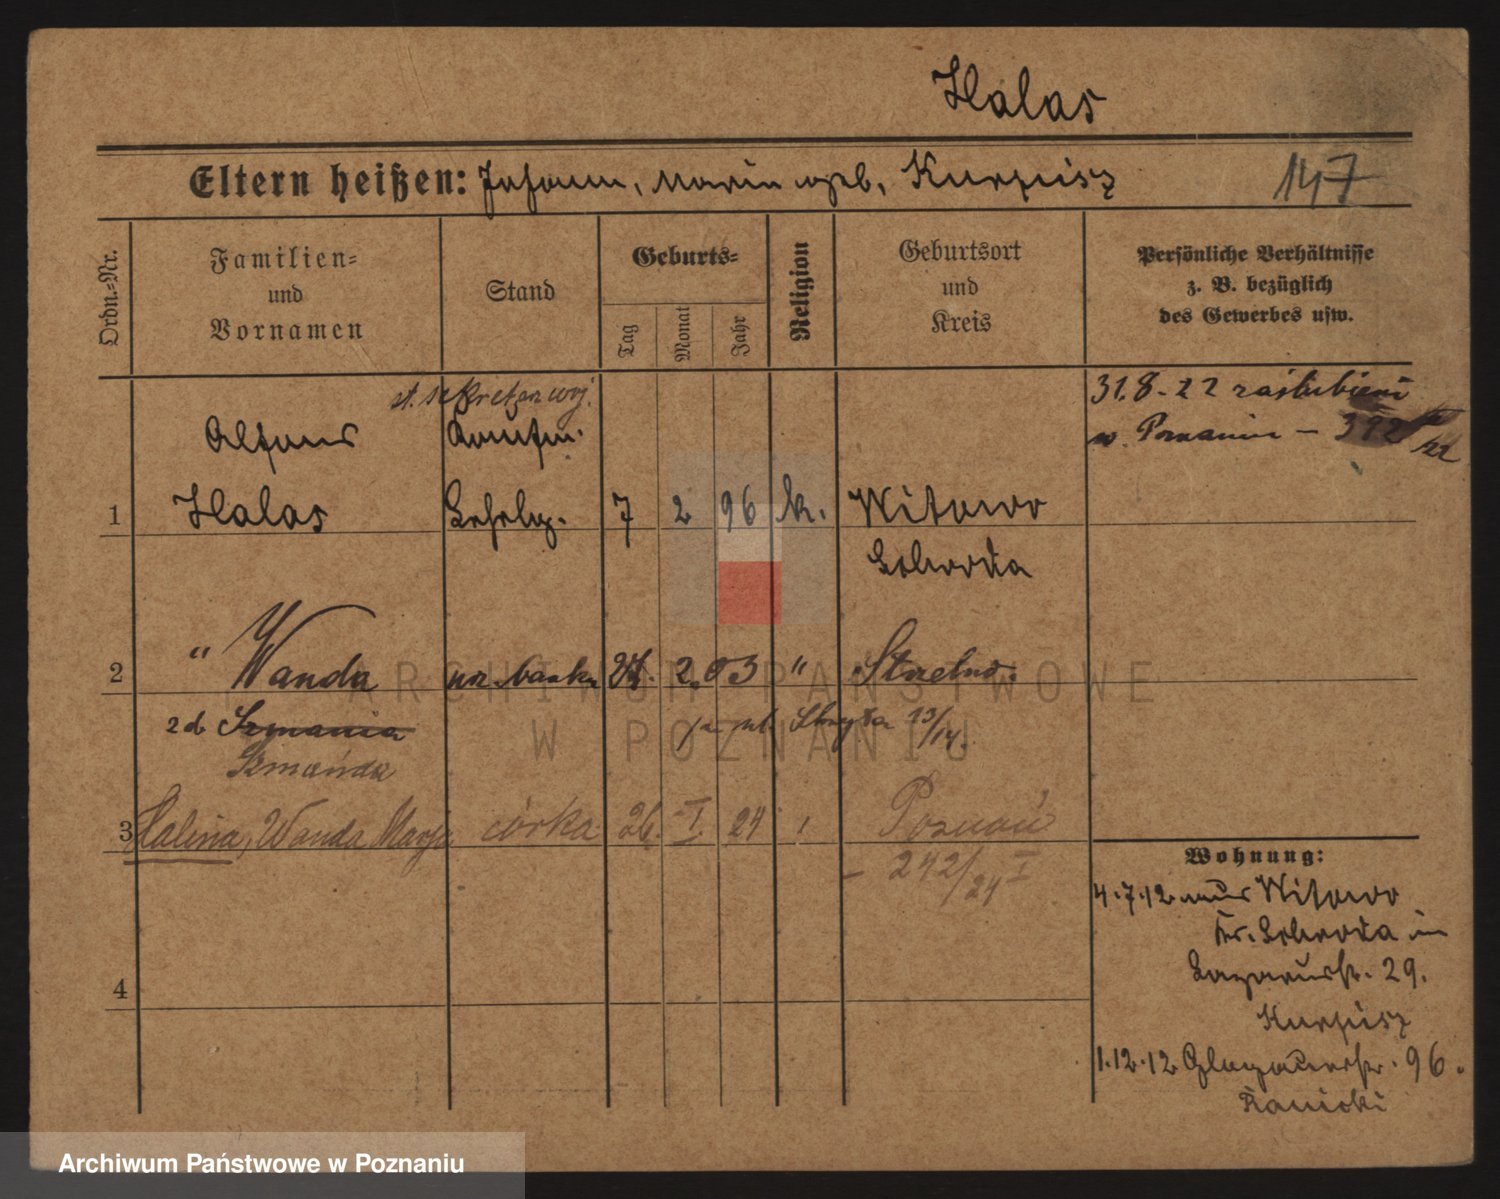 Halas
Eltern heißen: Johann, Maria geb. Kurpisz
147
Ordn.-Nr.
Familien-
und
Vornamen
Stand
Geburts-
Tag
Monat
Jahr
Religion
Geburtsort
und
Kreis
Persönliche Verhältnisse
z. B. bezüglich
des Gewerbes usw.
st. sekretarz woj.
31.8.22 zaślubieni
w Poznaniu – 392
Alfons
Kaufm.
1 Halas Lehrlg. 7 2 96 k. Witowo
Schroda
2 " Wanda urz. banku 2. 03 " Strzelno.
2d Szmania
Szmańda
13/14.
3 Halina, Wanda Marja córka 26. I. 24 Poznań
– 242/24 I
4
Wohnung:
4.7.12 aus Witowo
Kr. Schroda in
Lazarusstr. 29.
Kurpisz
1.12.12 Glogauerstr. 96.
Banicki
ARCHIWUM PAŃSTWOWE
W POZNANIU
Archiwum Państwowe w Poznaniu